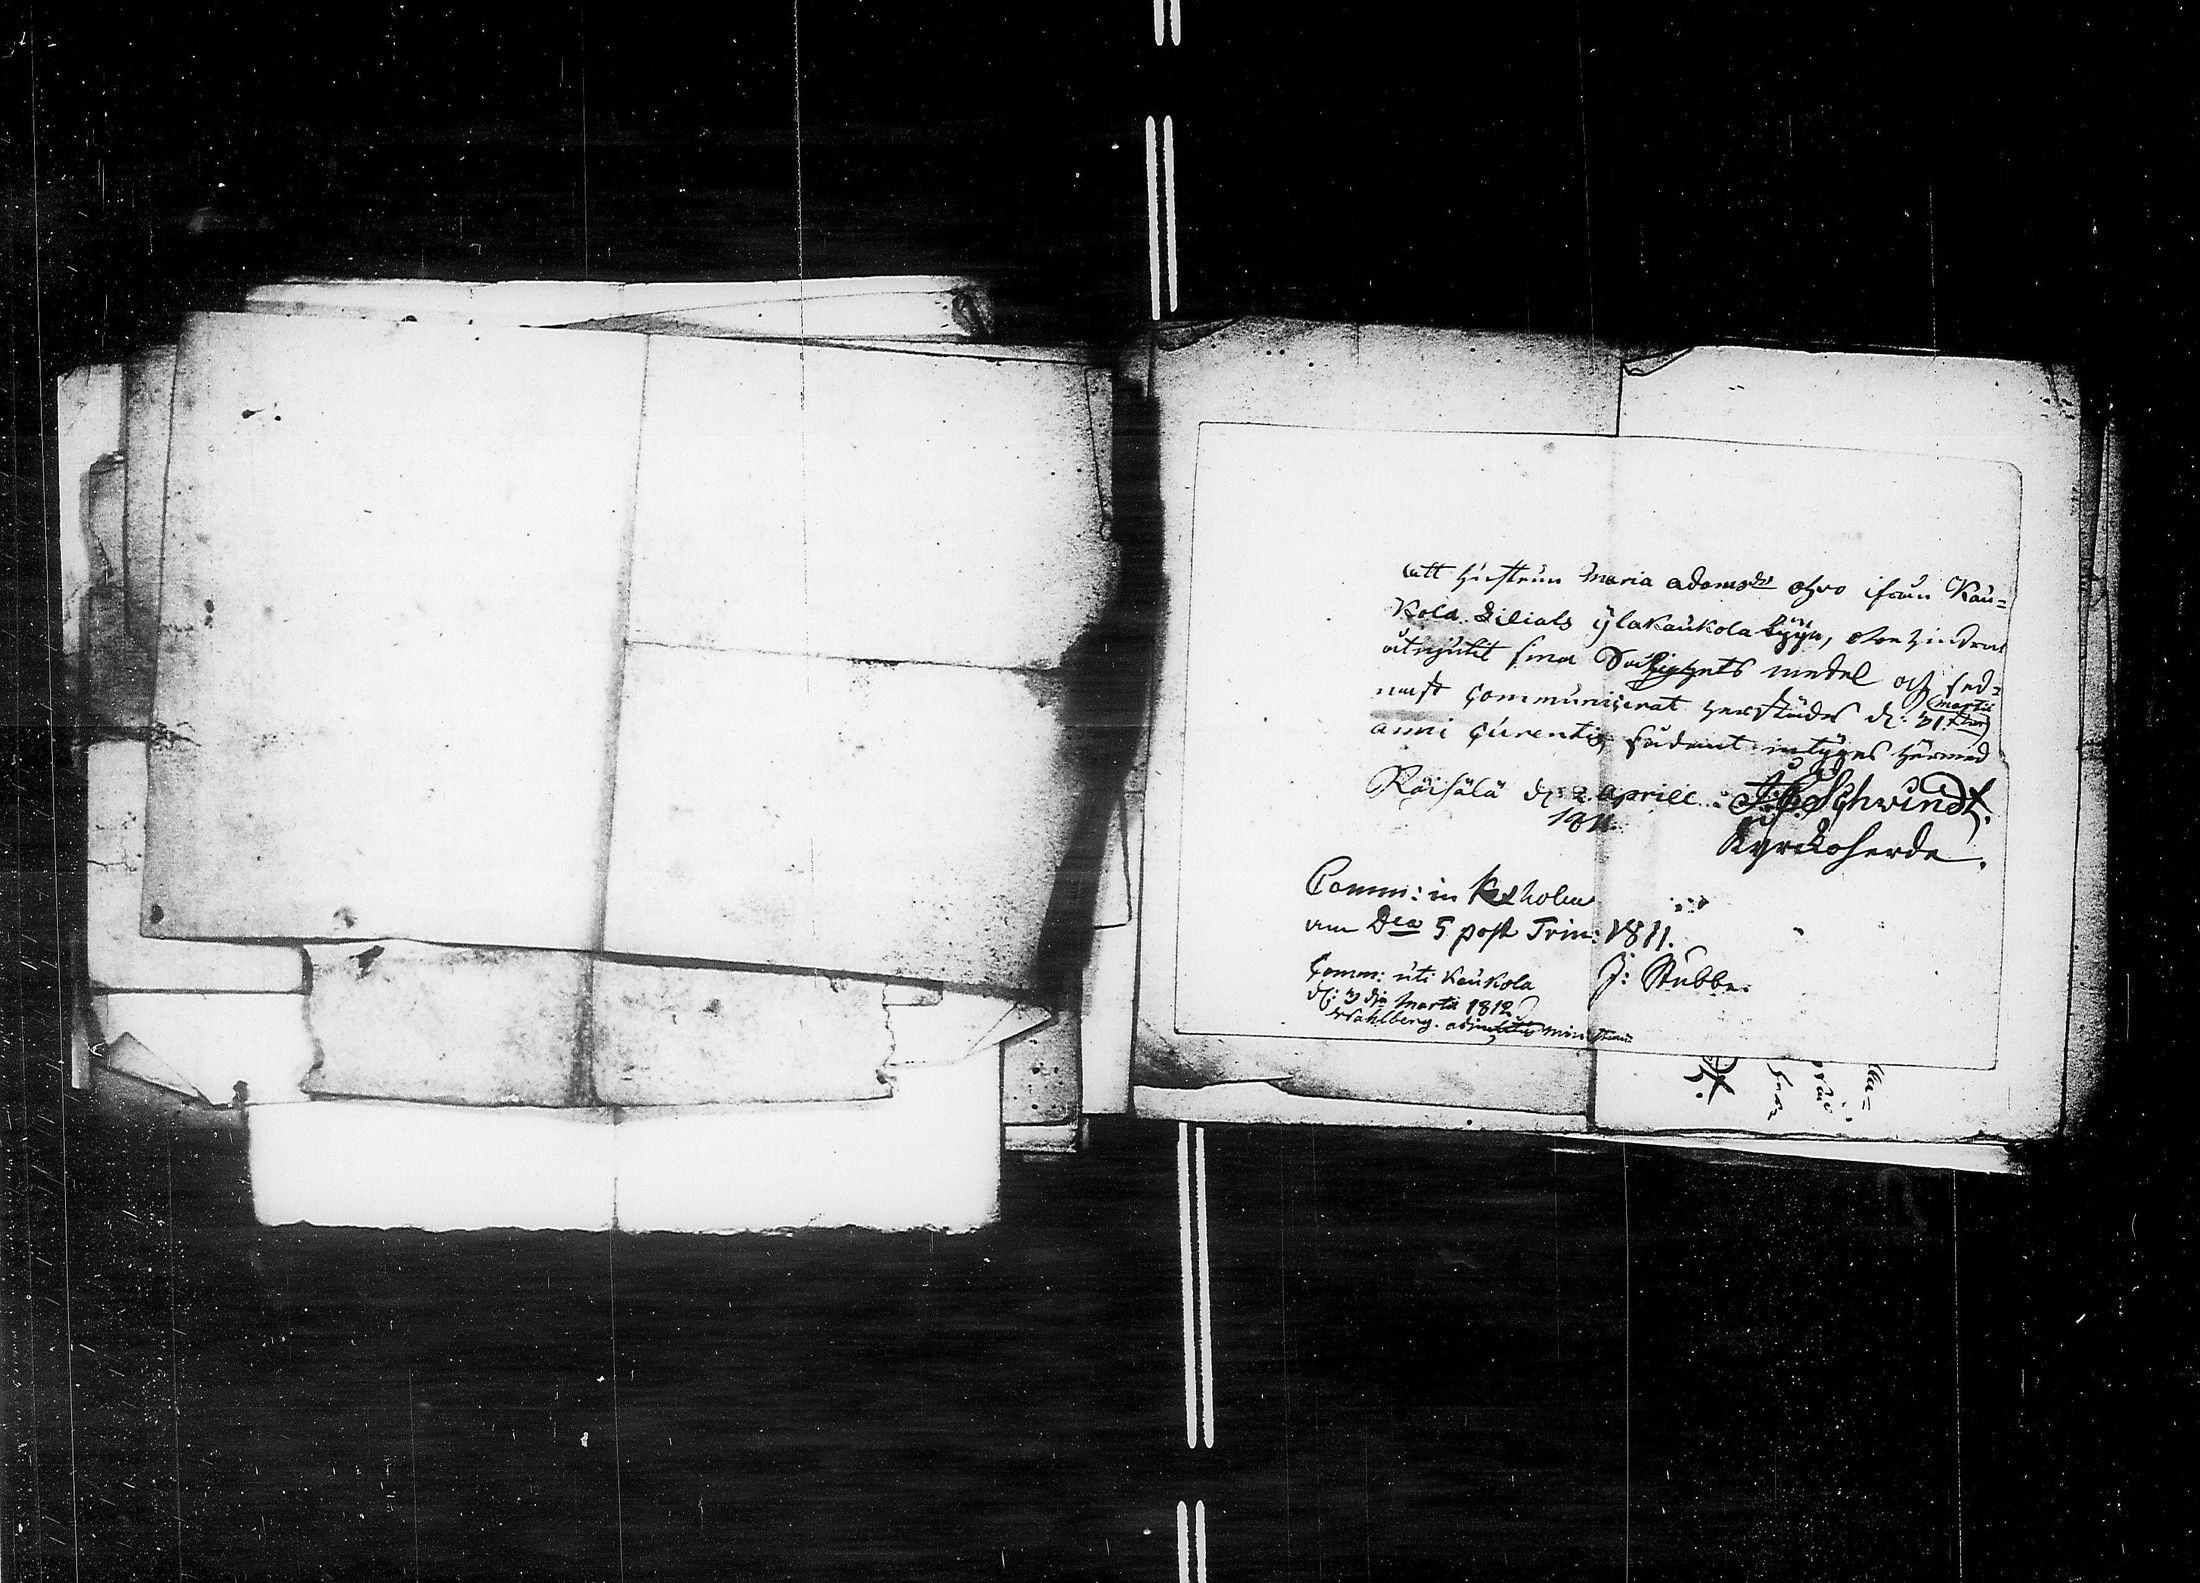 att Hustrun Maria Adamsdr Ohvo ifrån Kau=
kola Filials Ylakaukola byyn, obehindrat
åtnjutit sina Salighets medel och sed=
nast Communicerat härstädes d: 31 Martii
anni Curentis, sådant intyges härmed
Räisälä d: 2 Aprill. Schwindt.
1811.
Kyrckoherde.
Comm: in Kexholm
am Dca 5 post Trin: 1811.
J: Stubbe.
Comm: uti Kaukola
d: 3 dje Martii 1812
Wahlberg. adjunctus ministerii